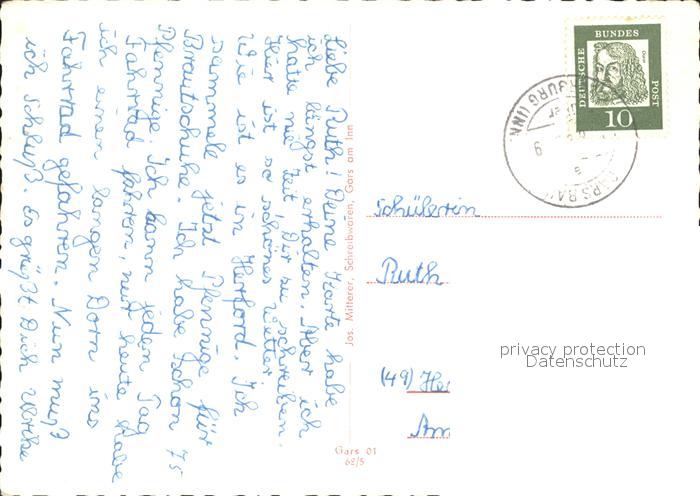 Liebe Ruth! Deine Karte habe
ich längst erhalten. Aber ich
hatte nie Zeit, Dir zu schreiben.
Hier ist so schönes Wetter
Wie ist es in Herford. Ich
sammele jetzt Pfennige für
Brautschuhe. Ich habe schon 75
Pfennige. Ich kann jeden Tag
Fahrrad fahren, nur heute habe
ich einen langen Dorn ins
Fahrrad gefahren. Nun muß
ich schluß. Es grüßt Dich Ulrike
Jos. Mitterer, Schreibwaren, Gars am Inn
Gars 01
62/5
DEUTSCHE BUNDES POST
10
BURG (INN
GARS BA
9
Schülerin
Ruth
(49) He
Am
privacy protection
Datenschutz